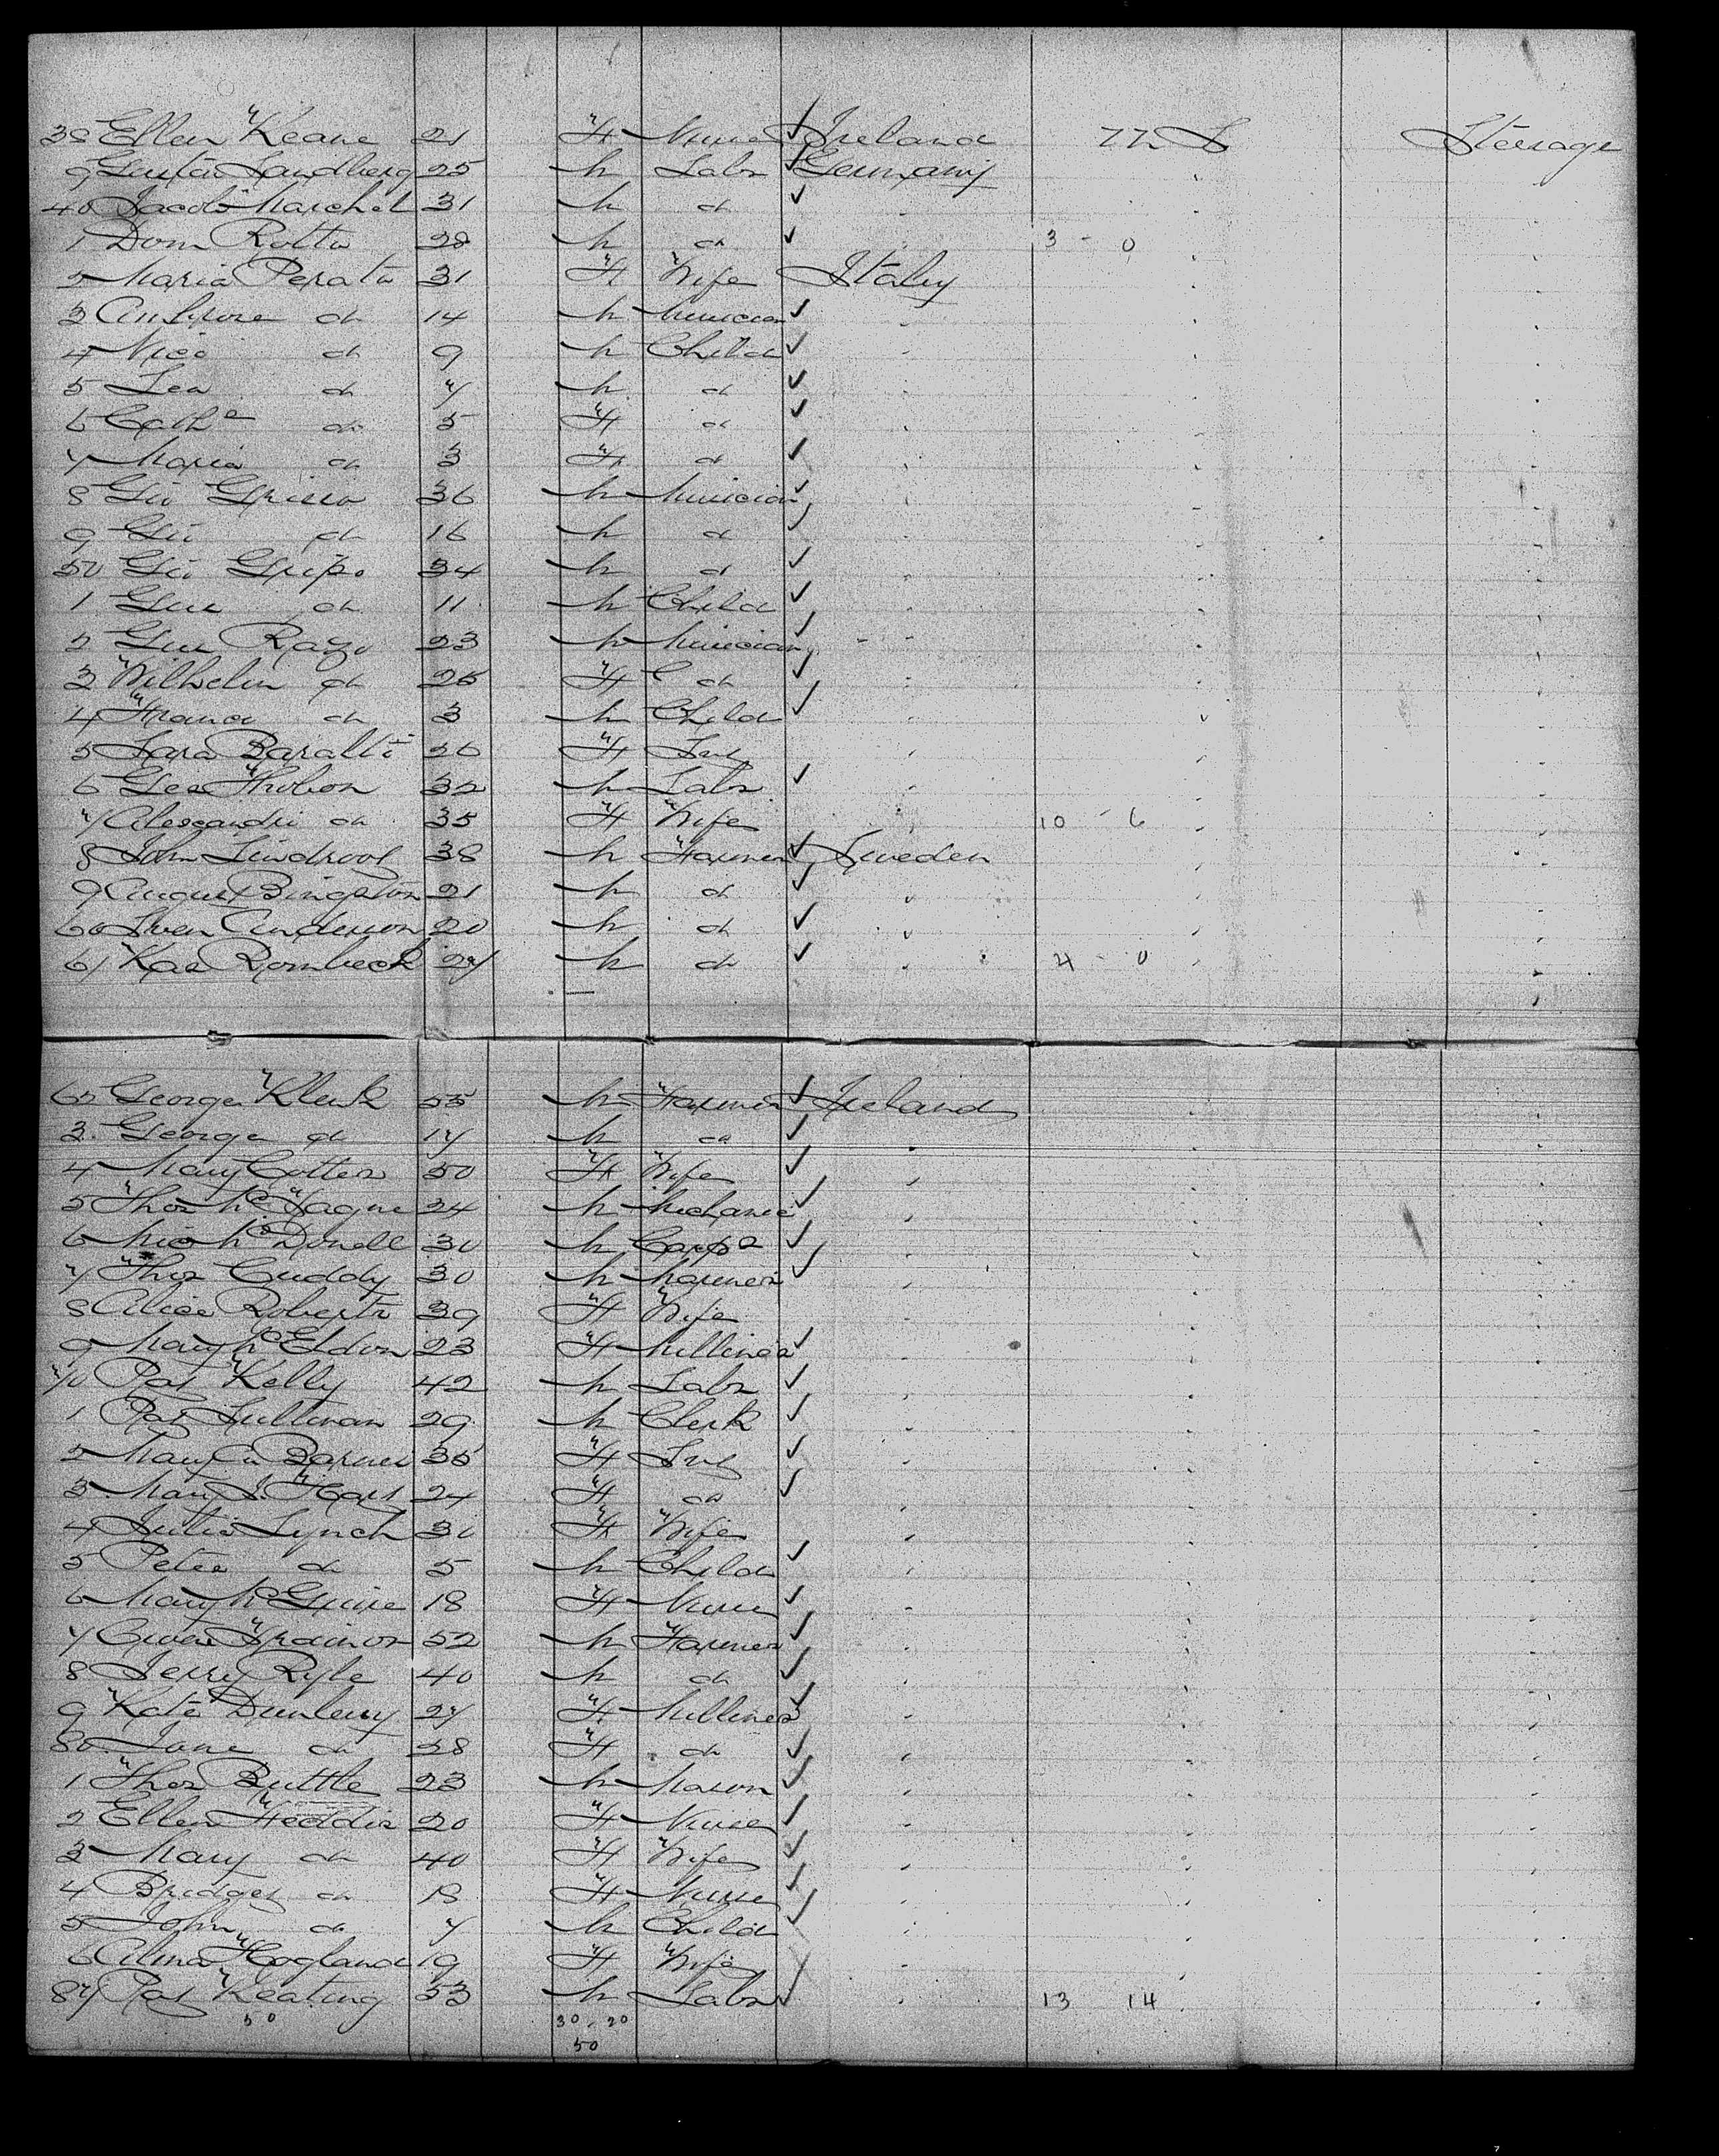 38 Ellen Keane 21 F Nurse ✓ Ireland U S Steerage
9 Gusta Sandberg 25 M Labr ✓ Germany
40 Jacob Marchel 31 M do ✓
1 Dom Rotta 28 M do ✓ 3 - 0
2 Maria Perata 31 F Wife Italy
3 do 14 M Musician ✓
4 Nico do 9 M Child ✓
5 Lea do 7 M do ✓
6 Cathe do 5 F do ✓
7 Maria do 3 F do ✓
8 Gio 36 M Musician ✓
9 Gio do 16 M do ✓
50 Gio 34 M do ✓
1 Giu do 11 M Child ✓
2 Giu Razo 23 M Musician ✓
3 Wilhelm do 26 F do ✓
4 do 3 M Child ✓
5 Sara Baratti 26 F
6 32 M Labr ✓
7 do 35 F Wife 10 - 6
8 John 38 M Farmer ✓ Sweden
9 August 21 M do ✓
60 Sven Anderson 20 M do ✓
61 Rombeck 27 M do ✓ 4 - 0
62 George 55 M Farmer ✓ Ireland
3 George do 17 M do ✓
4 Mary Cotter 50 F Wife ✓
5 Thos McTague 24 M Mechanic ✓
6 Mich McDonell 30 M Carpr ✓
7 Thos Cuddy 30 M ✓
8 Alice Roberts 39 F Wife
9 Mary McEldon 23 F Milliner ✓
70 Pat Kelly 42 M Labr ✓
1 Pat Sullivan 29 M Clerk ✓
2 Mary A Barnes 36 F ✓
3 Mary J. Hart 24 F do ✓
4 Julia Lynch 31 F Wife
5 Peter do 5 M Child ✓
6 Mary McGuire 18 F Nurse ✓
7 Owen Trainor 52 M Farmer ✓
8 Jerry Ryle 40 M do ✓
9 Kate Dunleavy 27 F Milliner ✓
80 Jane do 28 F do ✓
1 Thos Buttle 23 M Mason ✓
2 Ellen Heddir 20 F Nurse ✓
3 Mary do 40 F Wife ✓
4 Bridget do 18 F Nurse ✓
5 John do 7 M Child ✓
6 Alma Hogland 19 F Wife
87 Pat Keating 53 M Labr ✓ 13 14
50 30 . 20
50